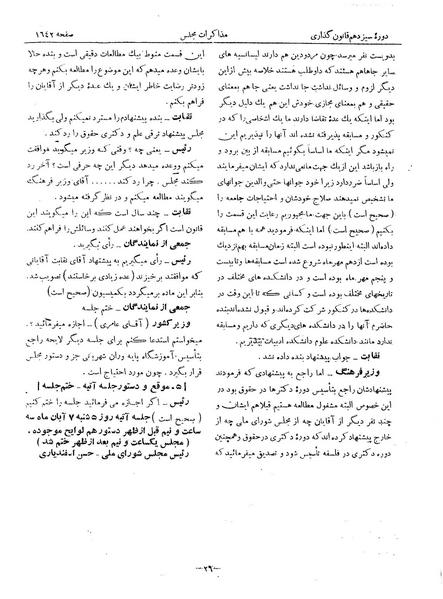 دورهٔ سیزدهم قانون گذاری
مذاکرات مجلس
صفحه ۱۶۴۲
بدویست نفر میرسد چون مردودین هم دارند لیسانسیه های
سایر جاها هم هستند که داوطلب هستند خلاصه بیش از این
دیگر لزوم و وسائل نداشت جا نداشت یعنی جا هم بمعنای
حقیقی و هم بمعنای مجازی خودش این هم یك دلیل دیگر
بود اما اینکه یك عدهٔ تقاضا دارند ما یك اشخاصی را که در
کنکور و مسابقه پذیرفته شده اند آنها را نپذیریم این
نمیشود مگر اینکه ما اساساً بگوئیم مسابقه از بین برود و
راه باز باشد این از یك جهت مانعی ندارد که ایشان میفرمایند
ولی اساساً ضرر دارد زیرا خود جوانها حتی والدین جوانهای
ما تشخیص نمیدهند صلاح خودشان و احتیاجات جامعه را
(صحیح است) باین جهت ما مجبوریم رعایت این قسمت را
بکنیم (صحیح است) اما اینکه فرمودید همه با هم مسابقه
داده اند البته اینطور نبوده است البته زمان مسابقه بهم نزدیك
بوده است از دهم مهرماه شروع شده است مسابقه ها و تا بیست
و پنجم مهرماه بوده است و در دانشکده های مختلف در
تاریخهای مختلف بوده است و کسانی که تا این وقت در
دانشکده ها در کنکور شرکت کرده اند و قبول نشده اند بنده
حاضرم آنها را در دانشکده های دیگری که داریم و مسابقه
ندارد مانند دانشکده علوم دانشکده ادبیات بپذیریم.
نقابت ـ جواب پیشنهاد بنده داده نشد.
وزیر فرهنگ ـ اما راجع به پیشنهادی که فرمودند
پیشنهادشان راجع بتأسیس دورهٔ دکترها در حقوق بود در
این خصوص البته مشغول مطالعه هستیم قبلا هم ایشان و
چند نفر دیگر از آقایان چه از مجلس شورای ملی چه از
خارج پیشنهاد کرده اند که دورهٔ دکتری در حقوق و همچنین
دوره دکتری در فلسفه تأسیس شود و تصدیق میفرمائید که
این قسمت منوط بیك مطالعات دقیقی است و بنده حالا
بایشان وعده میدهم که این موضوع را مطالعه کنم و هرچه
زودتر رضایت خاطر ایشان و یك عده از آقایان دیگر را
فراهم بکنم.
نقابت ـ بنده پیشنهادم را مسترد نمیکنم ولی بگذارید
مجلس پیشنهاد ترقی علم و دکتری حقوق را رد کند.
رئیس ـ یعنی چه؟ وقتی که وزیر میگوید موافقت
میکنم و وعده میدهد دیگر این چه حرفی است؟ آخر رد
کند مجلس. چرا رد کند...... آقای وزیر فرهنگ
میگویند مطالعه میکنم و در نظر گرفته میشود.
نقابت ـ چند سال است که این را میگویند این
قانون است اگر بخواهند عمل کنند وسائلش را فراهم کنند.
جمعی از نمایندگان ـ رأی بگیرید.
رئیس ـ رأی میگیریم به پیشنهاد آقای نقابت آقایانی
که موافقند برخیزند (عده زیادی برخاستند) تصویب شد.
بنابر این ماده برمیگردد بکمیسیون (صحیح است)
جمعی از نمایندگان ـ ختم جلسه
وزیر کشور (آقای عامری) ـ اجازه میفرمائید؟.
میخواستم استدعا کنم برای جلسه دیگر لایحه راجع
بتأسیس آموزشگاه پایه وران شهربانی جزو دستور مجلس
بگیرد. چون مورد احتیاج است.
[۵ـ موقع و دستور جلسه آتیه ـ ختم جلسه]
رئیس ـ اگر اجازه می فرمائید جلسه را ختم کنیم
(صحیح است) جلسه آتیه روز ۵شنبه ۷ آبان ماه سه
ساعت و نیم قبل از ظهر دستور هم لوایح موجوده.
(مجلس یکساعت و نیم بعد از ظهر ختم شد)
رئیس مجلس شورای ملی ـ حسن اسفندیاری
ـ۲۶ـ